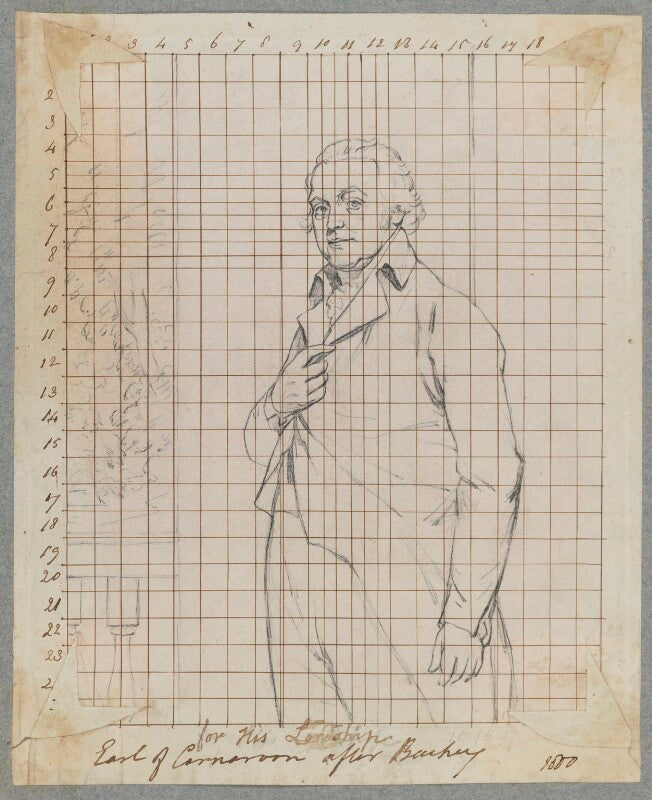 2 3 4 5 6 7 8 9 10 11 12 13 14 15 16 17 18
2
3
4
5
6
7
8
9
10
11
12
13
14
15
16
17
18
19
20
21
22
23
2
for His Lordship
Earl of Carnarvon after